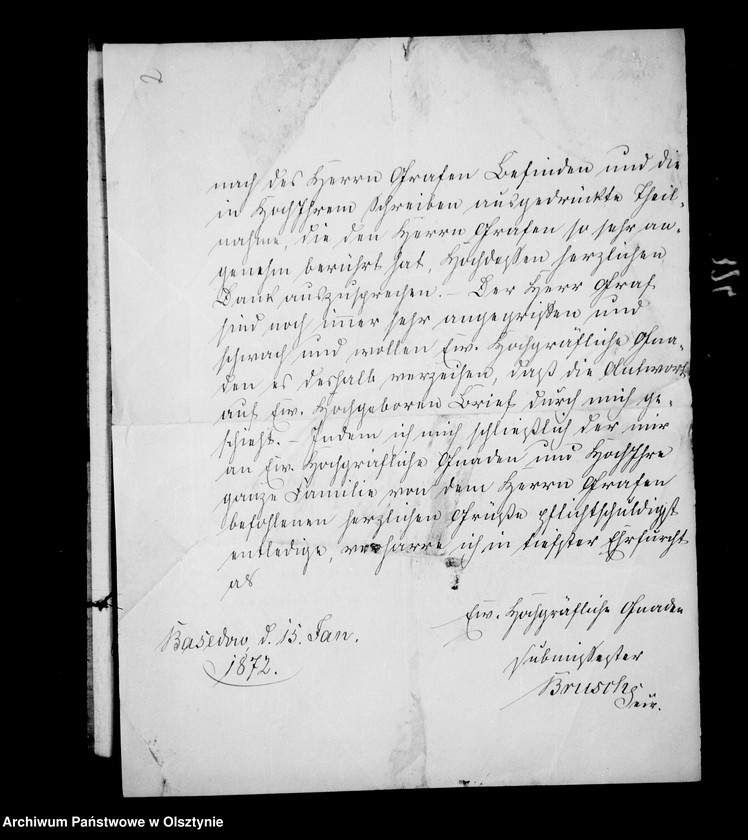 nach des Herrn Grafen Befinden und die
in HochIhrem Schreiben ausgedrückte Theil-
nahme, die den Herrn Grafen so sehr an-
genehm berührt hat, Hochdessen herzlichen
Dank auszusprechen. – Der Herr Graf
sind noch immer sehr angegriffen und
schwach und wollen Ew. Hochgräfliche Gna-
den es deshalb verzeihen, daß die Antwort
auf Ew. Hochgeboren Brief durch mich ge-
schieht. – Indem ich mich schließlich der mir
an Ew. Hochgräfliche Gnaden und HochIhre
ganze Familie von dem Herrn Grafen
befohlenen herzlichen Grüße pflichtschuldigst
entledige, verharre ich in tiefster Ehrfurcht
als
Ew. Hochgräfliche Gnaden
Basedow, d. 15. Jan.
1872.
submissester
Brusch
Archiwum Państwowe w Olsztynie